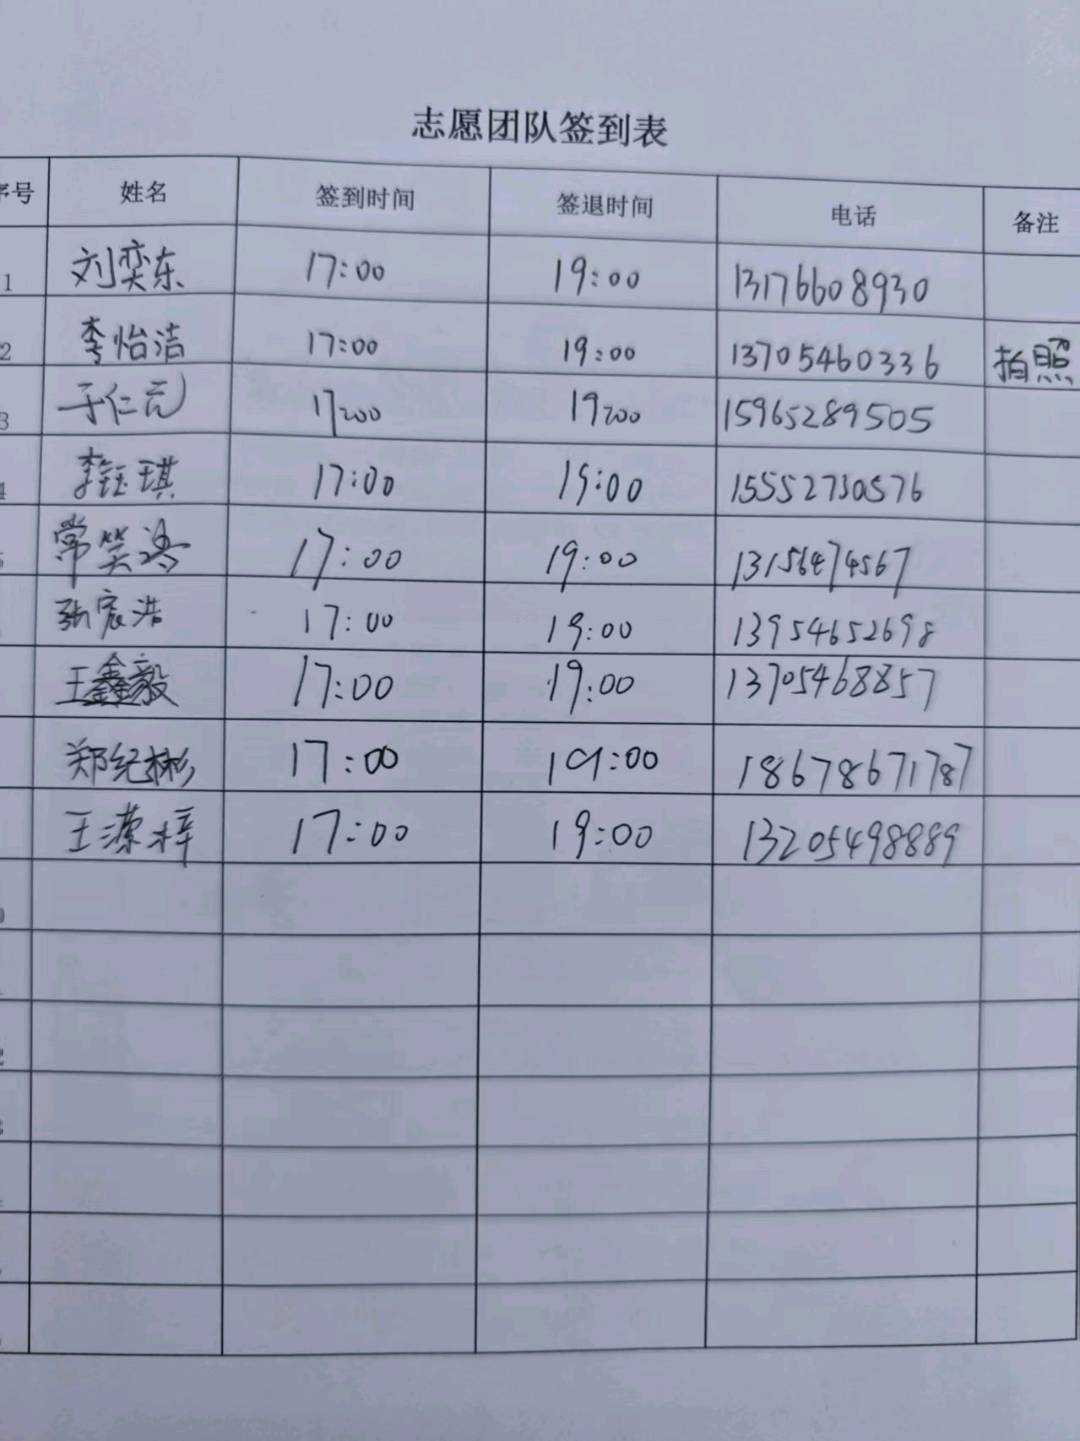 志愿团队签到表
序号 姓名 签到时间 签退时间 电话 备注
1 刘奕东 17:00 19:00 13176608930
2 李怡洁 17:00 19:00 13705460336 拍照
3 于仁元 17:00 19:00 15965289505
4 李钰琪 17:00 19:00 15552730576
5 常笑 17:00 19:00 13156474567
张宸浩 17:00 19:00 13954652698
王鑫毅 17:00 19:00 13705468857
郑纪彬 17:00 19:00 18678671787
王潆梓 17:00 19:00 13205498889